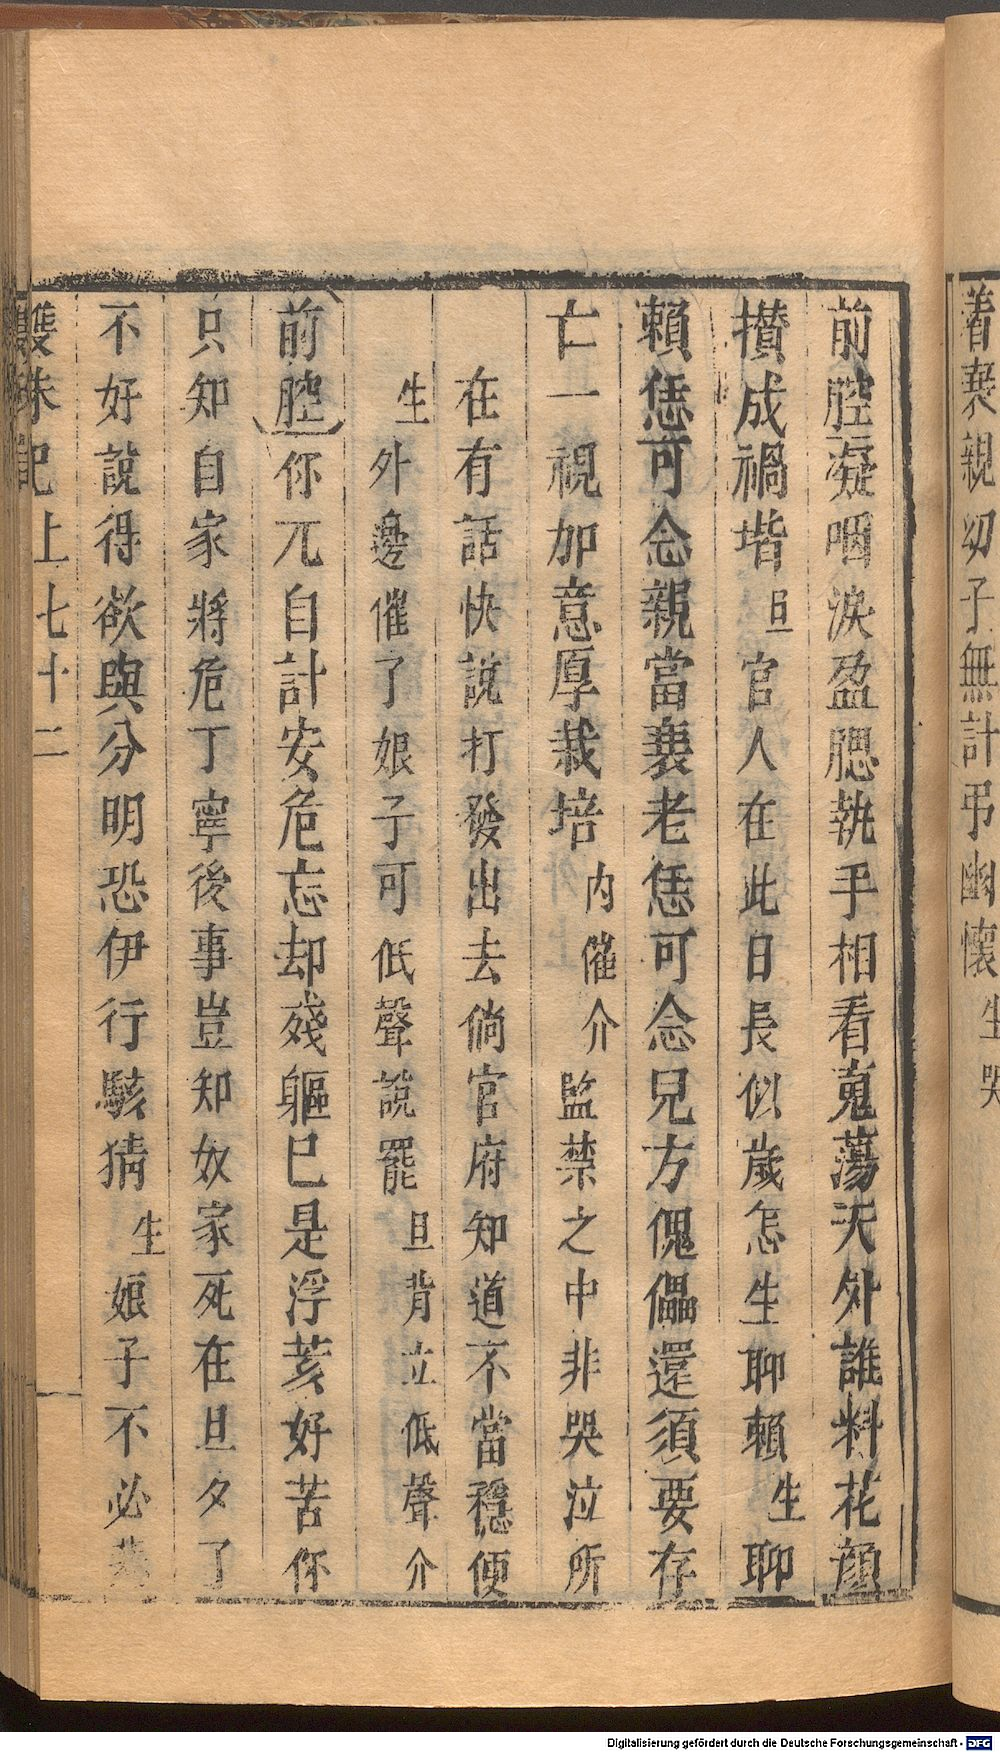 着衰親幼子無計弔幽懷生哭
前腔凝咽淚盈腮執手相看䰟蕩天外誰料花顔
攅成禍堦旦官人在此日長似歲怎生聊賴生聊
賴恁可念親當衰老恁可念兒方傀儡還須要存
亡一視加意厚栽培内催介監禁之中非哭泣所
在有話快說打發出去倘官府知道不當穩便
生外邊催了娘子可低聲說罷旦背立低聲介
前腔你兀自計安危忘却殘軀已是浮荄好苦你
只知自家將危丁寧後事豈知奴家死在旦夕了
不好說得欲與分明恐伊行駭猜生娘子不必
雙珠記上七十二
Digitalisierung gefördert durch die Deutsche Forschungsgemeinschaft - DFG